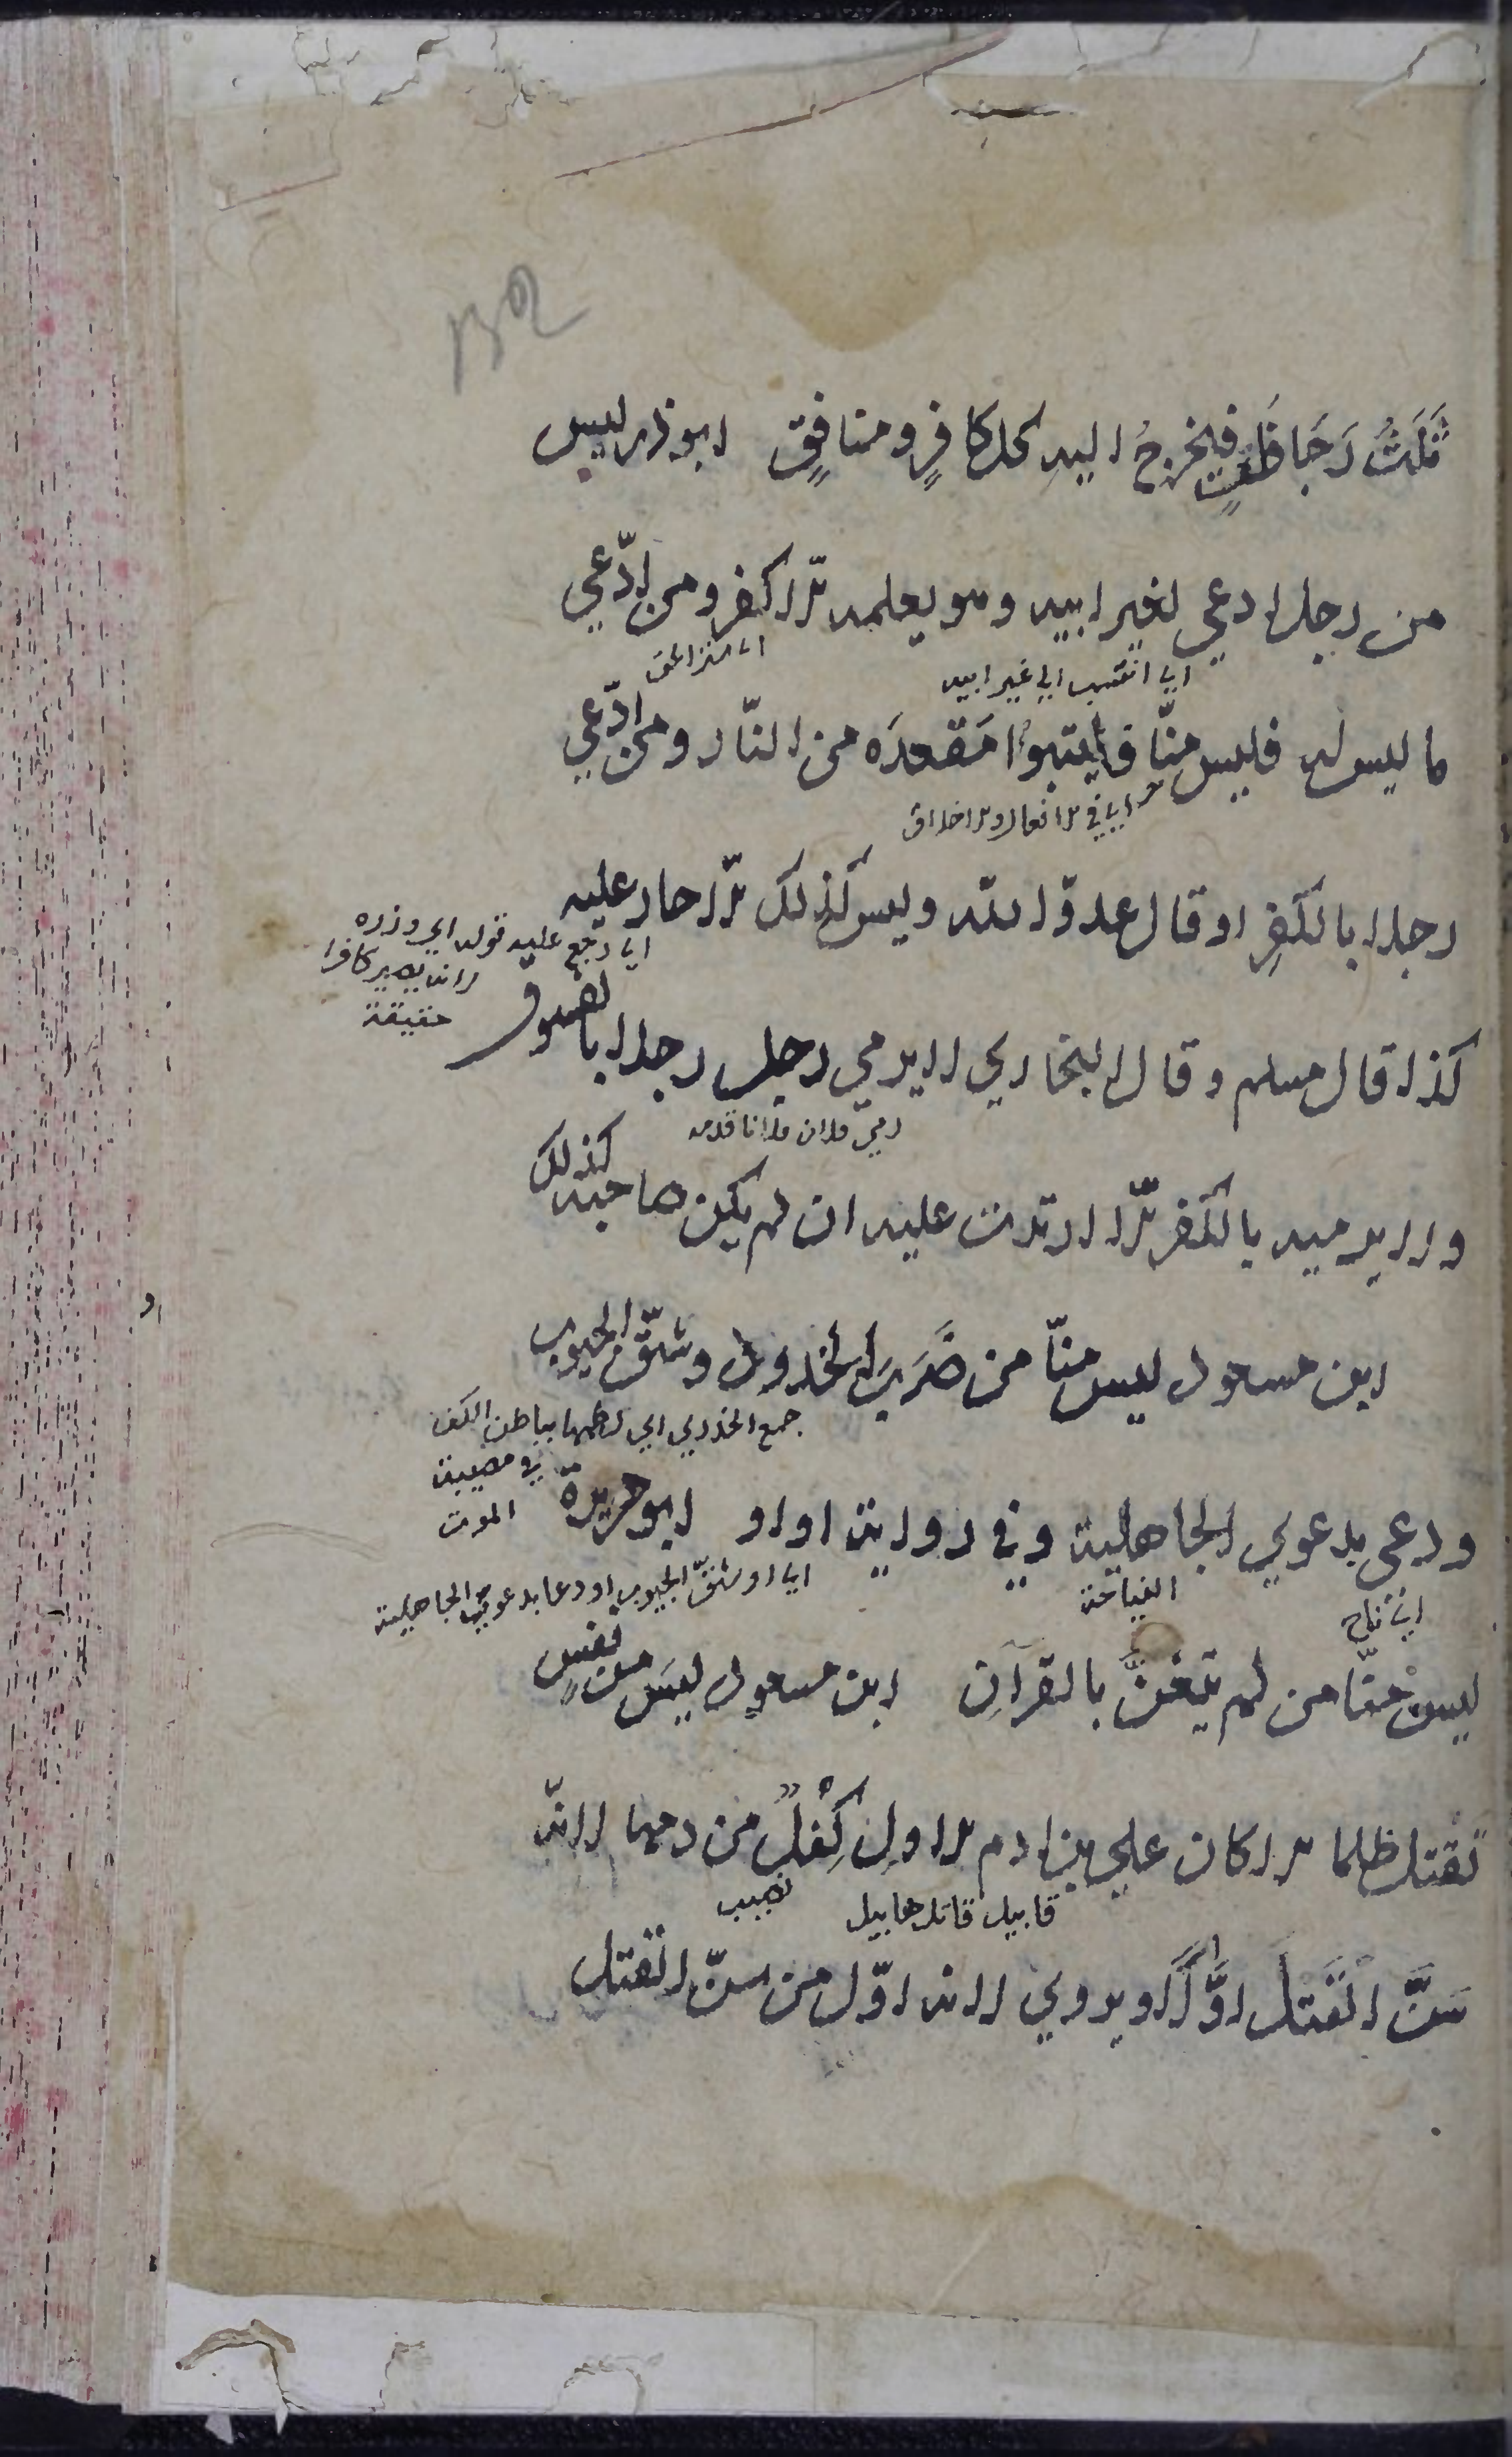 132
ثَلَثُ رَجَفَاتٍ فيخرجُ اليه كل كافرٍ ومنافقٍ ابو ذر ليس
من رجل ادعي لغير ابيه وهو يعلمه الا كفر ومن ادّعي
اي انتسب الي غير ابيه
ما ليس له فليس منّا وليتبوأ مَقعدَه من النّار ومن ادّعي
اي في الافعال والاخلاق
رجلا بالكفرِ او قال عدوّ الله وليس كذلك الّا حار عليه
اي رجع عليه قوله اي وزره
لا انه يصير كافرا
حقيقة
كذا قال مسلم وقال البخاري لا يرمي رجل رجلا بالفسوق
رمي فلان فلانا قذفه
ولا يرميه بالكفر الّا ارتدت عليه ان لم يكن صاحبه كذلك
ابن مسعود ليس منّا من ضَرَبَ الخدود وشقّ الجيوب
جمع الخد اي لطمها بباطن الكف
في مصيبة
الموت
ودعي بدعوي الجاهلية وفي رواية او او ابو هريرة
اي ناح
النياحة
اي او شقّ الجيوب او دعا بدعوي الجاهلية
ليس منّا من لم يتغنَّ بالقرآنِ ابن مسعود ليسَ من نفسٍ
تقتل ظلما الا كان علي بن ادم الاولِ كِفْلٌ من دمها لانّه
قابيل قاتل هابيل
نصيب
سَنَّ القَتلَ اوَّلًا ويروي لانه اوّل من سنّ القتل